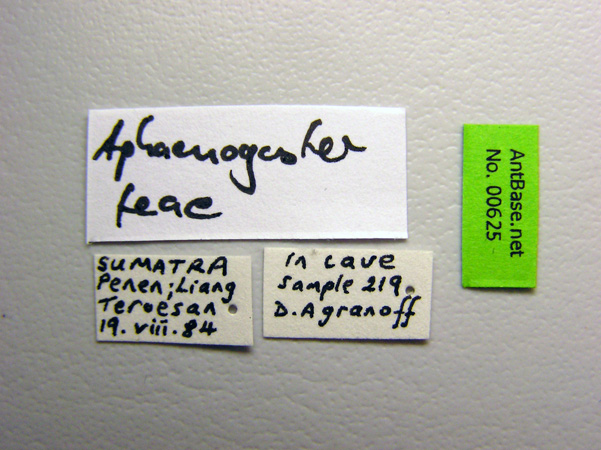 Aphaenogaster
feae
SUMATRA
Penen; Liang
Teroesan
19.viii.84
In cave
Sample 219.
D.Agranoff
AntBase.net
No. 00625